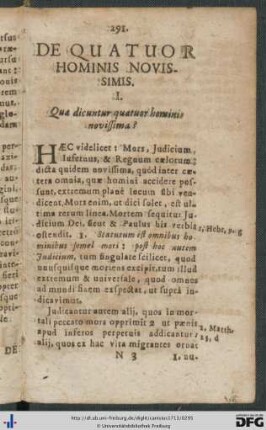 291.
DE QUATUOR
HOMINIS NOVIS-
SIMIS.
I.
Quæ dicuntur quatuor hominis
novissima?
HÆC videlicet: Mors, Judicium,
Infernus, & Regnum cælorum:
dicta quidem novissima, quòd inter cæ-
tera omnia, quæ homini accidere pos-
sunt, extremum planè locum sibi ven-
dicent. Mors enim, ut dici solet, est ulti-
ma rerum linea. Mortem sequitur Ju-
dicium Dei, sicut & Paulus his verbis
ostendit. 1. Statutum est omnibus ho-
minibus semel mori: post hoc autem
Judicium, tum singulare scilicet, quod
unusquisque mortens excipit, tum illud
extremum & universale, quod omnes
ad mundi finem exspectat, ut suprà in-
dicavimus.
Judicantur autem alij, quos in mor-
tali peccato mors opprimit 2 ut pœnis
apud inferos perpetuis addicantur;
alij, quos ex hac vita migrantes ornat
N 3
1. nu-
1. Hebr. 9. g
2. Matth.
DE
http://dl.ub.uni-freiburg.de/diglit/canisius1713/0295
© Universitätsbibliothek Freiburg
gefördert durch die
DFG